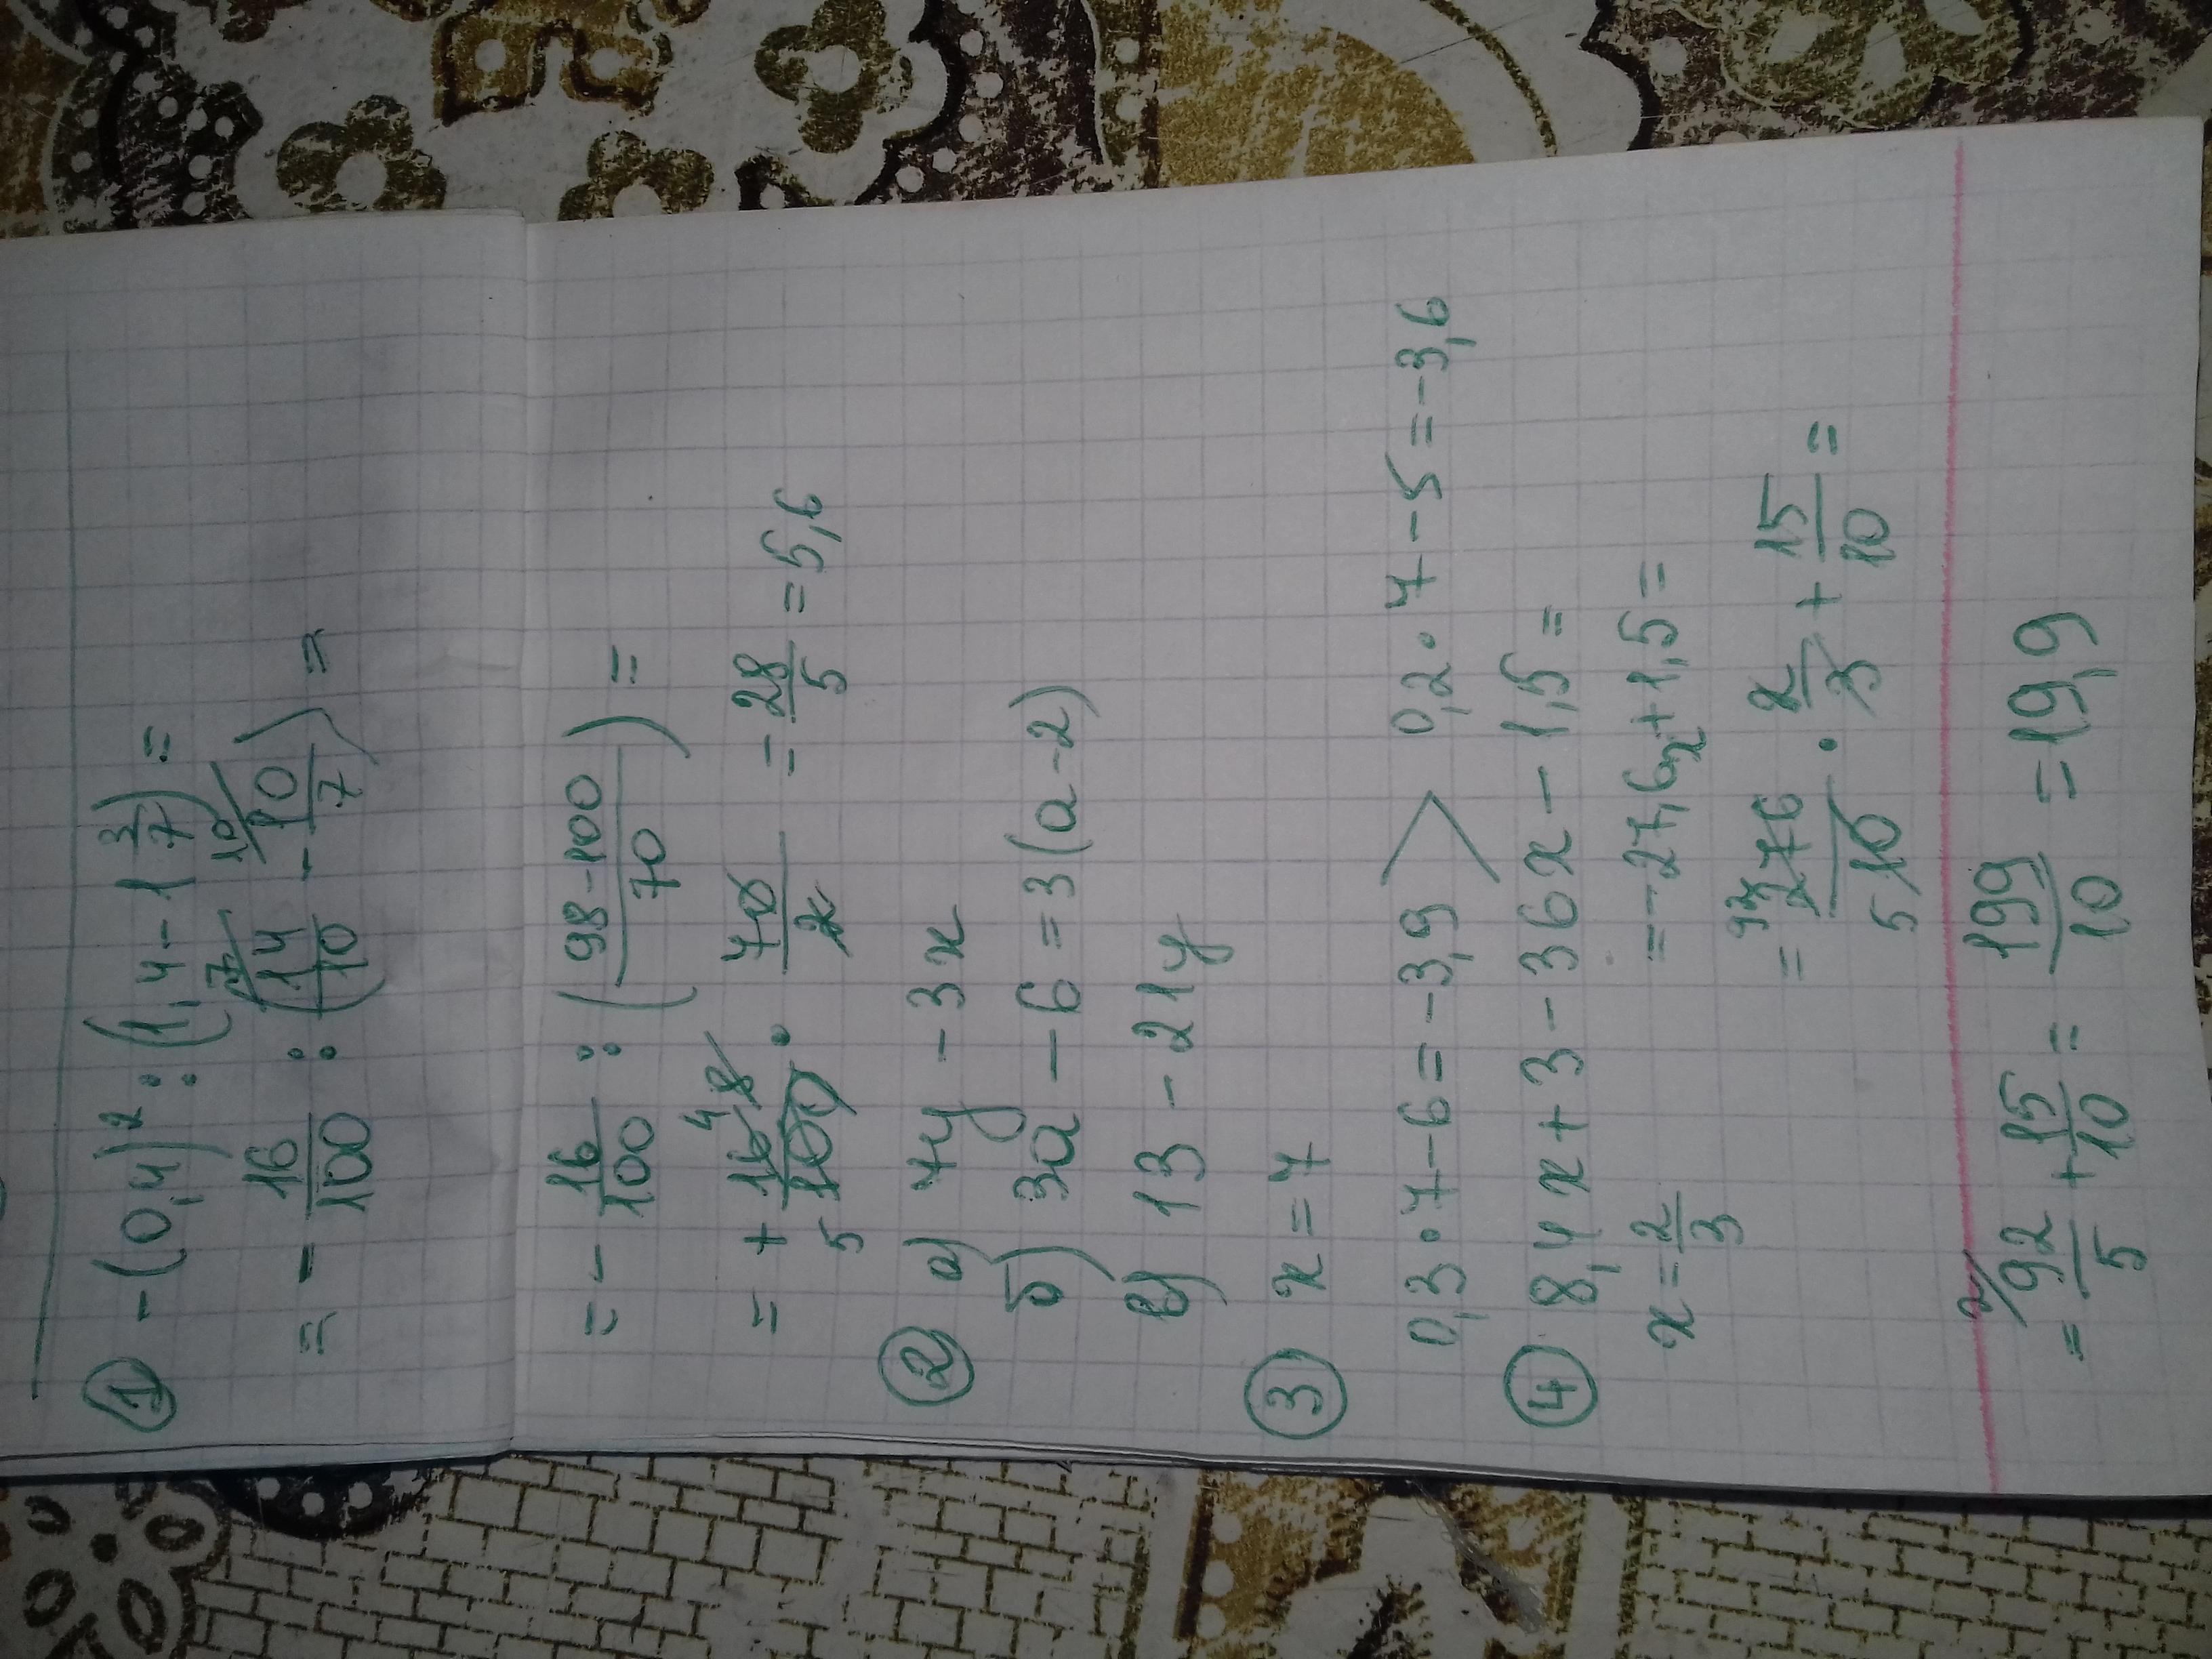 ① -(0,4)² : (1,4 - 1 3/7) =
= - 16/100 : (14/10 - 10/7) =
= - 16/100 : (98-100/70) =
= + 16/100 · 70/2 = 28/5 = 5,6
② а) 4y - 3x
б) 3a - 6 = 3(a-2)
в) 13 - 21y
③ x = 7
0,3·7-6=-3,9 > 0,2·7-5=-3,6
④ 8,4x+3-36x-1,5=
x = 2/3 = -27,6x+1,5=
= 276/10 · 2/3 + 15/10 =
= 92/5 + 15/10 = 199/10 = 19,9